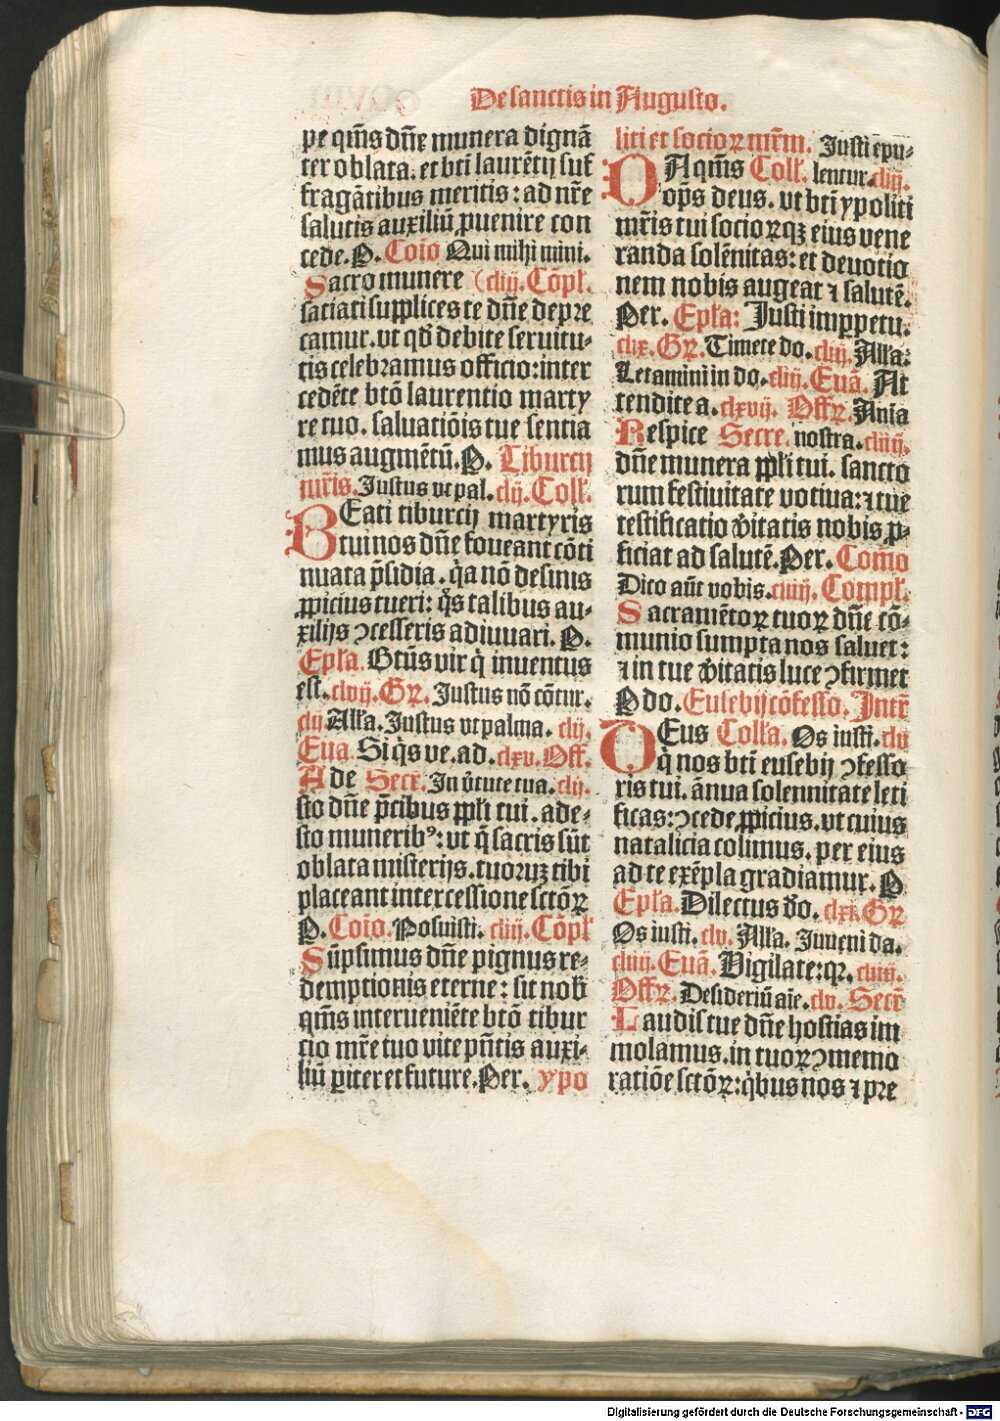 De sanctis in Augusto.
pe qm̄s dn̄e munera dignā
ter oblata. et bt̄i laurētij suf
fragātibus meritis: ad nr̄e
salutis auxiliū ꝓuenire con
cede. P. Coīo Qui mihi mini.
Sacro munere (cliij. Cōpl̄.
satiati supplices te dn̄e depre
camur. vt qd̄ debite seruitu-
tis celebramus officio: inter
cedēte btō laurentio marty
re tuo. saluatiōis tue sentia
mus augmētū. P. Tiburcij
mr̄is. Justus vt pal. clij. Coll̄.
BEati tiburcij martyris
tui nos dn̄e foueant cōti
nuata p̄sidia. q̄a nō desinis
ꝓpicius tueri: q̄s talibus au-
xilijs ↄcesseris adiuuari. P.
Epl̄a. Btūs vir q̇ inuentus
est. clvij. Gꝝ. Justus nō cōtur.
clij All̄a. Justus vt palma. clij.
Eua. Si q̇s ve. ad. clxv. Off.
Ade Secr̄. In v̄tute tua. clij.
sto dn̄e p̄cibus ppl̄i tui. ade-
sto muneribꝰ: vt q̄ sacris sūt
oblata misterijs. tuoruꝫ tibi
placeant intercessione sctōꝝ
P. Coīo. Posuisti. cliij. Cōpl̄
Sūpsimus dn̄e pignus re-
demptionis eterne: sit nob̄
qm̄s interueniēte btō tibur
tio mr̄e tuo vite pn̄tis auxi-
liū ꝑiter et future. Per. ypo
liti et socioꝝ mr̄m. Justi epu-
DA qm̄s Coll̄. lentur. cliij.
op̄s deus. vt bt̄i ypoliti
mr̄is tui socioꝝqꝫ eius vene
randa solēnitas: et deuotio
nem nobis augeat ⁊ salutē.
Per. Epl̄a: Justi imꝑpetu.
clix. Gꝝ. Timete do. cliij. All̄a:
Letamini in do. cliij. Euā. At
tendite a. clxvij. Offꝝ. Anīa
Respice Secre. nostra. cliiij.
dn̄e munera ppl̄i tui. sancto
rum festiuitate votiua: ⁊ tue
testificatio v̄itatis nobis ꝓ-
ficiat ad salutē. Per. Com̄o
Dico aūt vobis. cliiij. Compl̄.
Sacramētoꝝ tuoꝝ dn̄e cō-
munio sumpta nos saluet:
⁊ in tue v̄itatis luce ↄfirmet
P do. Eusebij cōfesso. Intr̄
DEus Coll̄a. Os iusti. clv
q̇ nos bt̄i eusebij ↄfesso
ris tui. ānua solennitate leti
ficas: ↄcede ꝓpicius. vt cuius
natalicia colimus. per eius
ad te exēpla gradiamur. P
Epl̄a. Dilectus d̄o. clxi. Gꝝ
Os iusti. clv. All̄a. Inueni da.
cliiij. Euā. Vigilate: qꝛ. cliiij.
Offꝝ. Desideriū aīe. clv. Secr̄
Laudis tue dn̄e hostias im
molamus. in tuoꝝ ↄmemo
ratiōe sctōꝝ: q̇bus nos ⁊ pre
Digitalisierung gefördert durch die Deutsche Forschungsgemeinschaft - DFG